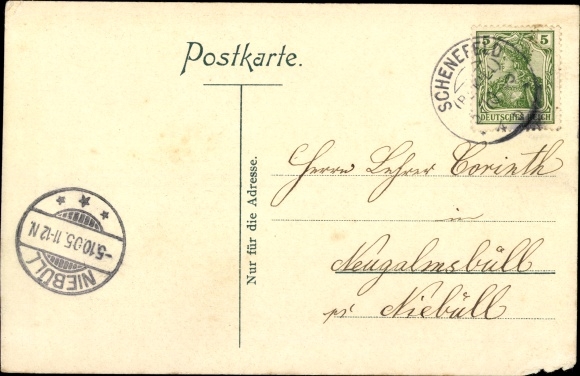 Postkarte.
5 5
DEUTSCHES REICH
SCHENEFELD
Nur für die Adresse.
Herrn Lehrer Corinth
in
Neugalmsbüll
pr Niebüll
-5.10.05.11-12N
NIEBÜLL